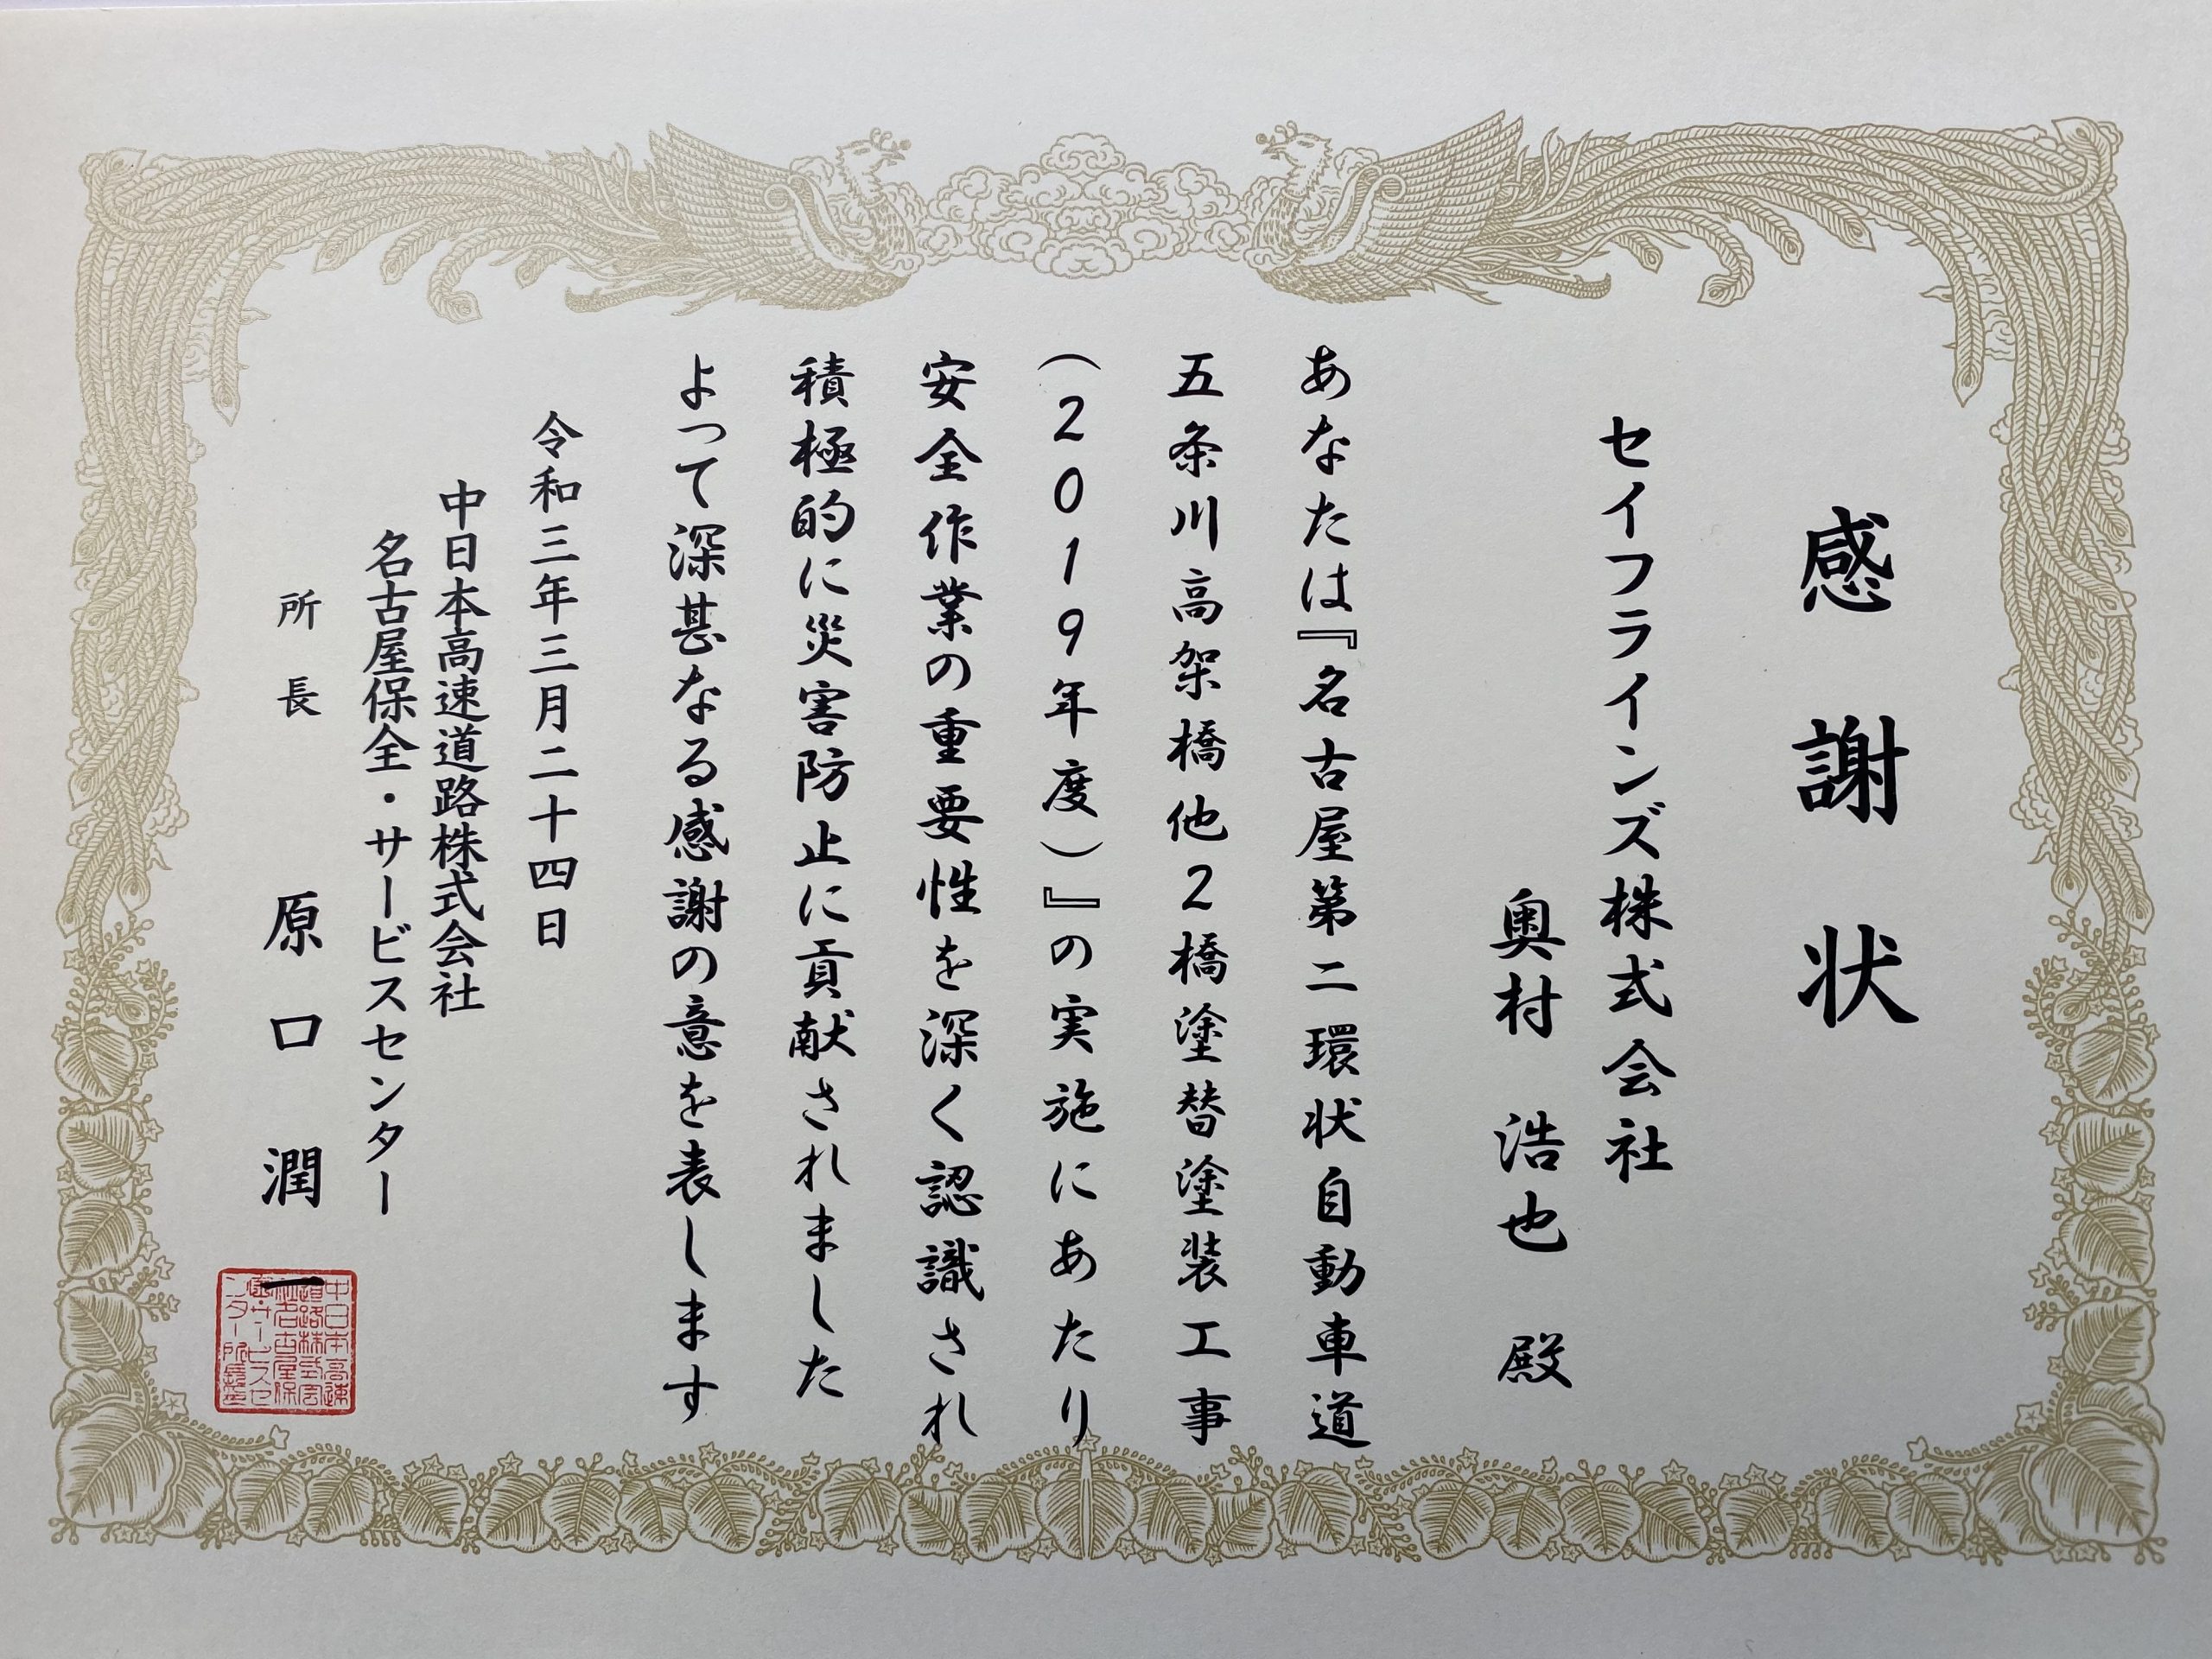 感謝状
セイフラインズ株式会社
奥村 浩也 殿
あなたは『名古屋第二環状自動車道
五条川高架橋他2橋塗替塗装工事
(2019年度)』の実施にあたり
安全作業の重要性を深く認識され
積極的に災害防止に貢献されました
よって深甚なる感謝の意を表します
令和三年三月二十四日
中日本高速道路株式会社
名古屋保全・サービスセンター
所長 原口潤一
中日本高速
道路株式会
社名古屋保
全・サービスセ
ンター所長